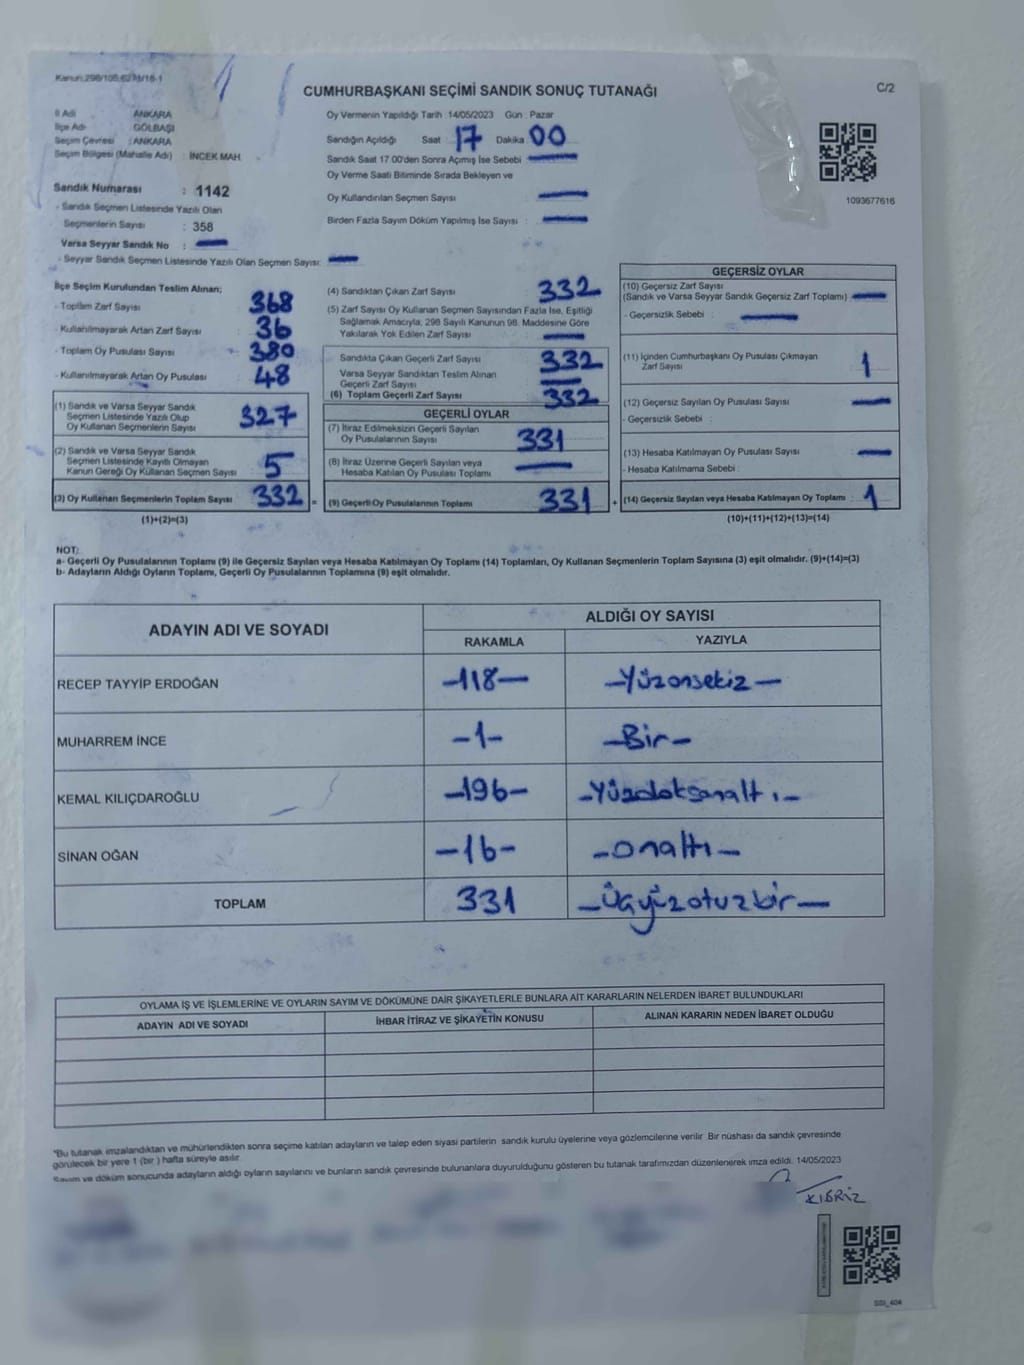 Kanun:298/105,6271/16-1
CUMHURBAŞKANI SEÇİMİ SANDIK SONUÇ TUTANAĞI
C/2
İl Adı ANKARA
İlçe Adı GÖLBAŞI
Seçim Çevresi : ANKARA
Seçim Bölgesi (Mahalle Adı) : İNCEK MAH.
Oy Vermenin Yapıldığı Tarih : 14/05/2023 Gün : Pazar
Sandığın Açıldığı Saat 17 Dakika 00
Sandık Saat 17.00'den Sonra Açılmış İse Sebebi
Oy Verme Saati Bitiminde Sırada Bekleyen ve
Oy Kullandırılan Seçmen Sayısı :
Birden Fazla Sayım Döküm Yapılmış İse Sayısı :
1093677616
Sandık Numarası : 1142
- Sandık Seçmen Listesinde Yazılı Olan
Seçmenlerin Sayısı : 358
Varsa Seyyar Sandık No :
- Seyyar Sandık Seçmen Listesinde Yazılı Olan Seçmen Sayısı:
İlçe Seçim Kurulundan Teslim Alınan;
- Toplam Zarf Sayısı : 368
- Kullanılmayarak Artan Zarf Sayısı : 36
- Toplam Oy Pusulası Sayısı : 380
- Kullanılmayarak Artan Oy Pusulası : 48
(1) Sandık ve Varsa Seyyar Sandık
Seçmen Listesinde Yazılı Olup
Oy Kullanan Seçmenlerin Sayısı : 327
(2) Sandık ve Varsa Seyyar Sandık
Seçmen Listesinde Kayıtlı Olmayan
Kanun Gereği Oy Kullanan Seçmen Sayısı : 5
(3) Oy Kullanan Seçmenlerin Toplam Sayısı : 332 =
(1)+(2)=(3)
(4) Sandıktan Çıkan Zarf Sayısı : 332
(5) Zarf Sayısı Oy Kullanan Seçmen Sayısından Fazla İse, Eşitliği
Sağlamak Amacıyla, 298 Sayılı Kanunun 98. Maddesine Göre
Yakılarak Yok Edilen Zarf Sayısı :
Sandıkta Çıkan Geçerli Zarf Sayısı : 332
Varsa Seyyar Sandıktan Teslim Alınan
Geçerli Zarf Sayısı :
(6) Toplam Geçerli Zarf Sayısı : 332
GEÇERLİ OYLAR
(7) İtiraz Edilmeksizin Geçerli Sayılan
Oy Pusulalarının Sayısı : 331
(8) İtiraz Üzerine Geçerli Sayılan veya
Hesaba Katılan Oy Pusulası Toplamı :
(9) Geçerli Oy Pusulalarının Toplamı : 331 +
GEÇERSİZ OYLAR
(10) Geçersiz Zarf Sayısı
(Sandık ve Varsa Seyyar Sandık Geçersiz Zarf Toplamı) :
- Geçersizlik Sebebi :
(11) İçinden Cumhurbaşkanı Oy Pusulası Çıkmayan
Zarf Sayısı : 1
(12) Geçersiz Sayılan Oy Pusulası Sayısı :
- Geçersizlik Sebebi :
(13) Hesaba Katılmayan Oy Pusulası Sayısı :
- Hesaba Katılmama Sebebi :
(14) Geçersiz Sayılan veya Hesaba Katılmayan Oy Toplamı : 1
(10)+(11)+(12)+(13)=(14)
NOT:
a- Geçerli Oy Pusulalarının Toplamı (9) ile Geçersiz Sayılan veya Hesaba Katılmayan Oy Toplamı (14) Toplamları, Oy Kullanan Seçmenlerin Toplam Sayısına (3) eşit olmalıdır. (9)+(14)=(3)
b- Adayların Aldığı Oyların Toplamı, Geçerli Oy Pusulalarının Toplamına (9) eşit olmalıdır.
ADAYIN ADI VE SOYADI
ALDIĞI OY SAYISI
RAKAMLA YAZIYLA
RECEP TAYYİP ERDOĞAN -118- -Yüzonsekiz-
MUHARREM İNCE -1- -Bir-
KEMAL KILIÇDAROĞLU -196- -Yüzdoksanaltı-
SİNAN OĞAN -16- -onaltı-
TOPLAM 331 -Üçyüzotuzbir-
OYLAMA İŞ VE İŞLEMLERİNE VE OYLARIN SAYIM VE DÖKÜMÜNE DAİR ŞİKAYETLERLE BUNLARA AİT KARARLARIN NELERDEN İBARET BULUNDUKLARI
ADAYIN ADI VE SOYADI İHBAR İTİRAZ VE ŞİKAYETİN KONUSU ALINAN KARARIN NEDEN İBARET OLDUĞU
"Bu tutanak imzalandıktan ve mühürlendikten sonra seçime katılan adayların ve talep eden siyasi partilerin sandık kurulu üyelerine veya gözlemcilerine verilir. Bir nüshası da sandık çevresinde
görülecek bir yere 1 (bir ) hafta süreyle asılır.
Sayım ve döküm sonucunda adayların aldığı oyların sayılarını ve bunların sandık çevresinde bulunanlara duyurulduğunu gösteren bu tutanak tarafımızdan düzenlenerek imza edildi. 14/05/2023